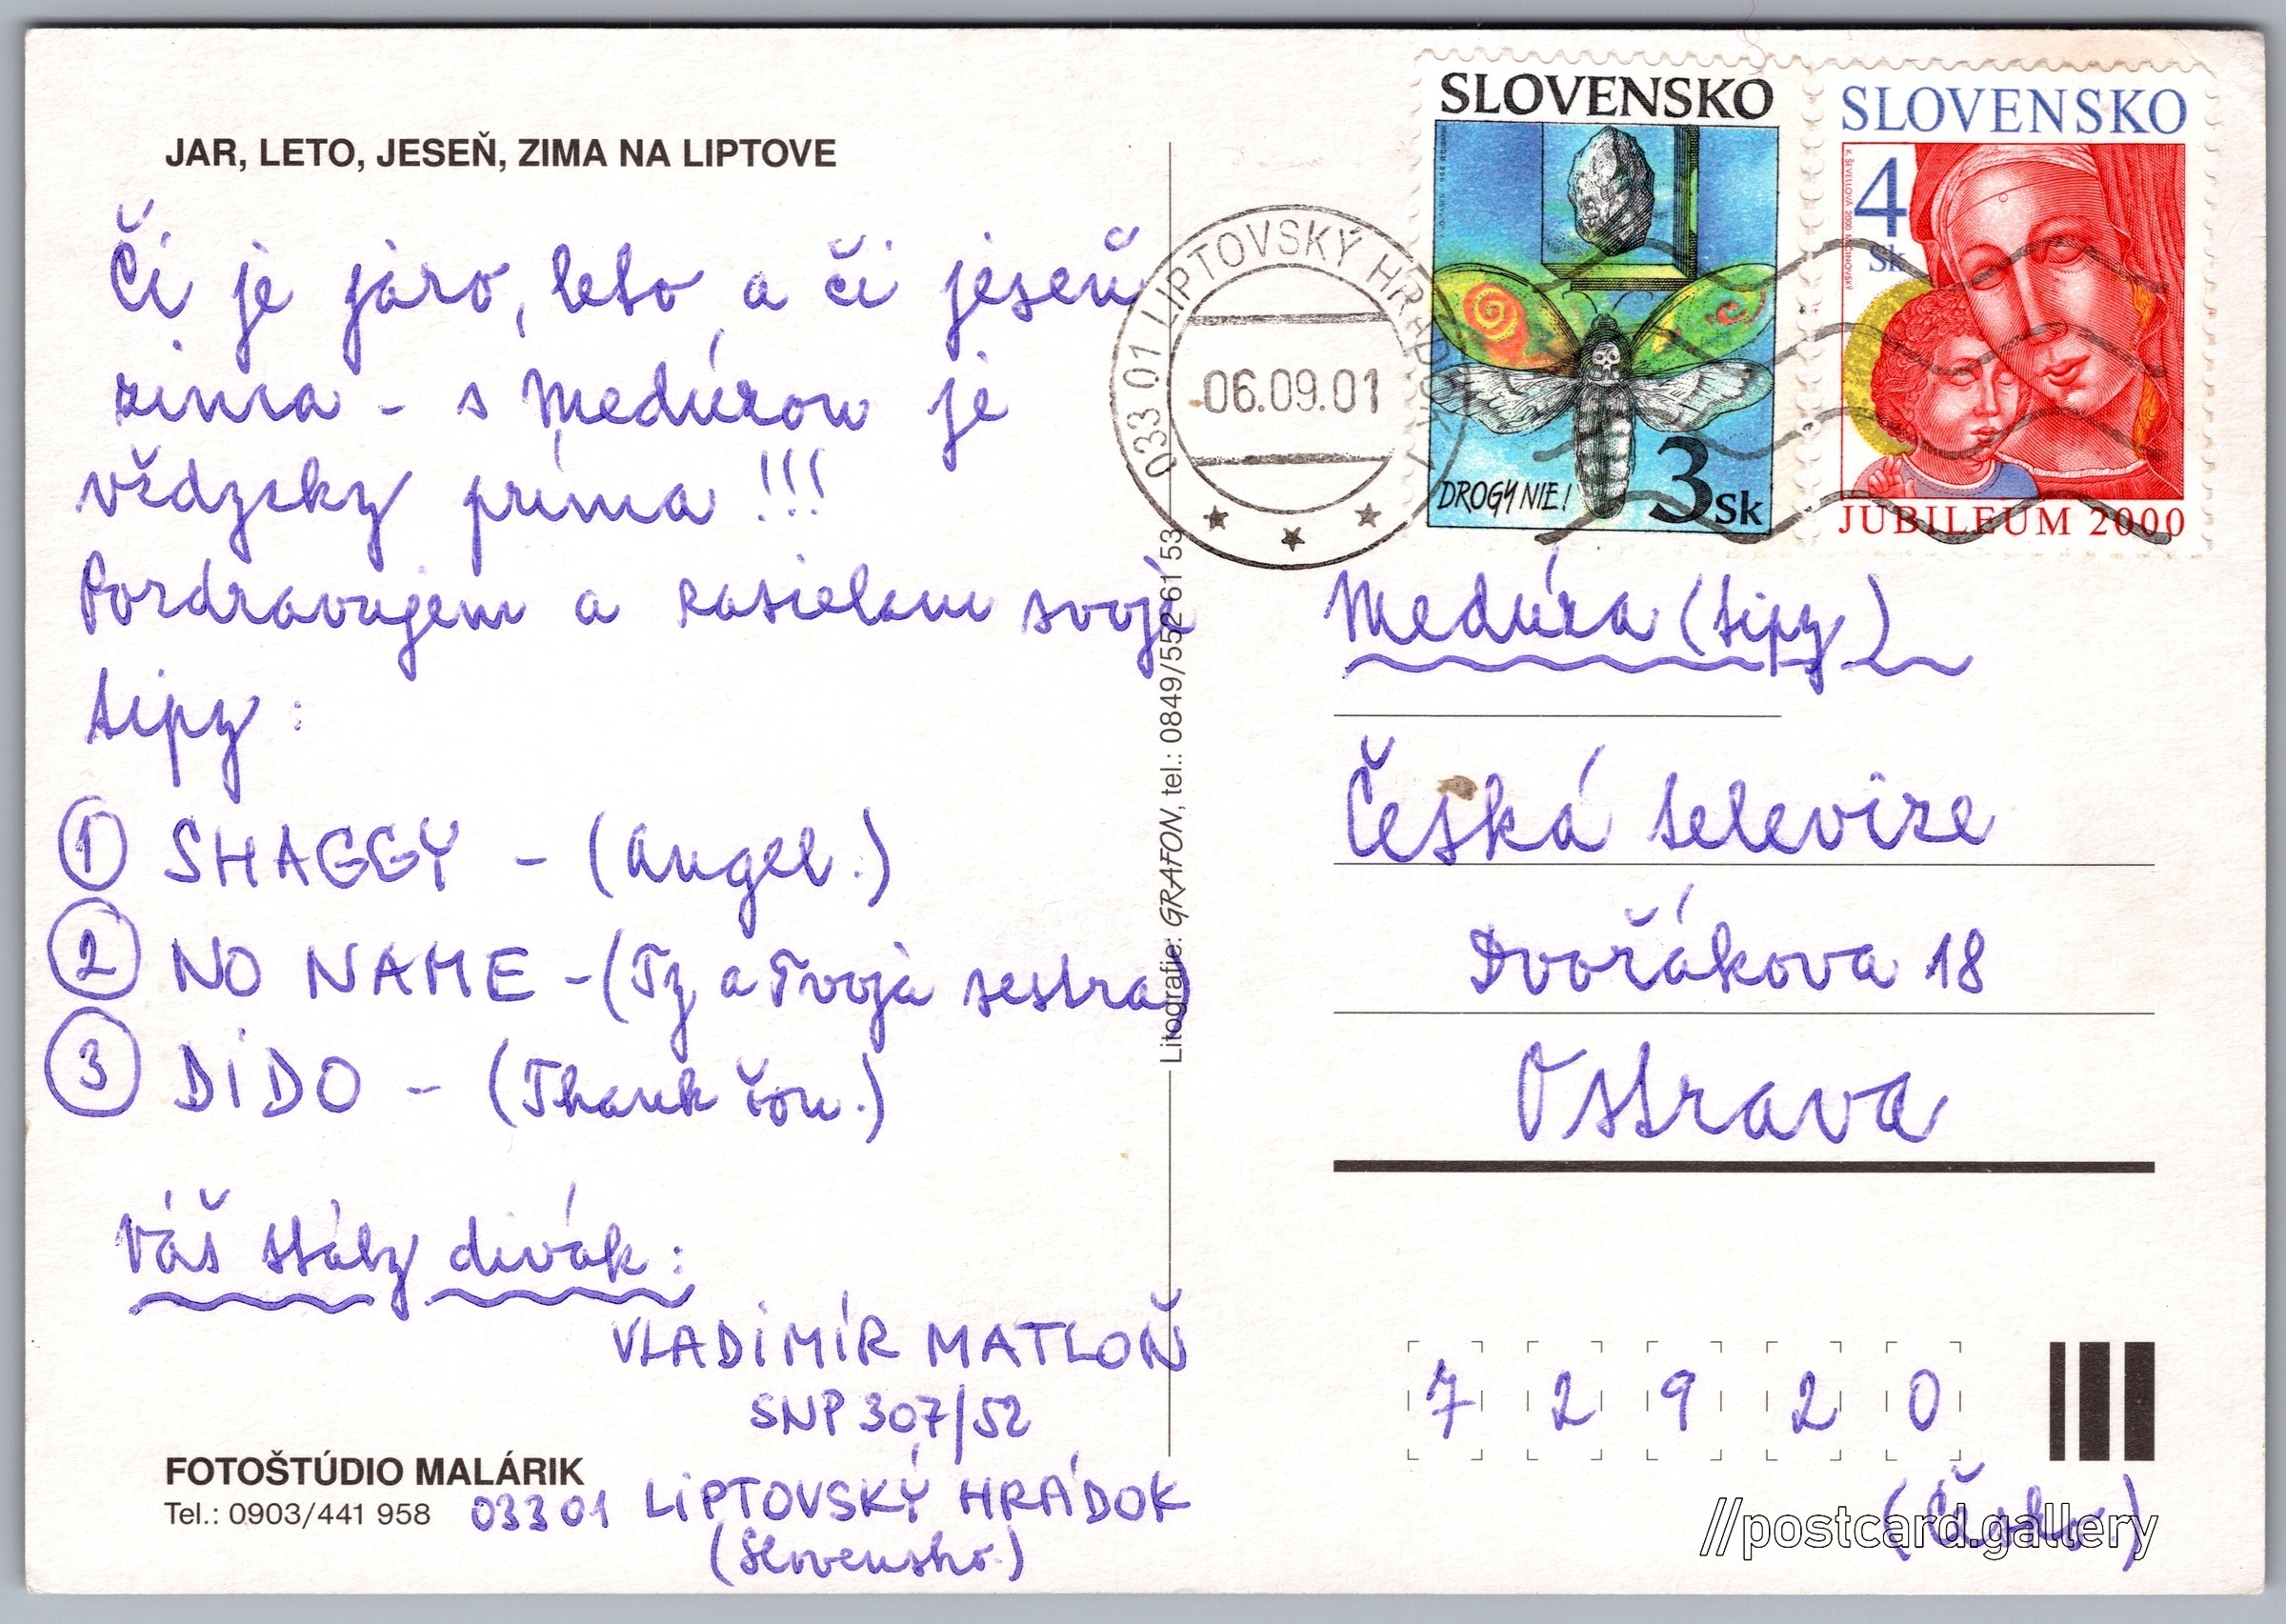 JAR, LETO, JESEŇ, ZIMA NA LIPTOVE
Či je járo, leto, a či jeseň
zima - s Medúzou je
vždzcky príma !!!
Pozdravujem a zasielam svoje
tipy :
1 SHAGGY - (Angel.)
2 NO NAME - (Ty a Tvoja sestra)
3 DIDO - (Thank You.)
Váš stály divák :
VLADIMÍR MATLOŇ
SNP 307/52
03301 LIPTOVSKÝ HRÁDOK
(Slovensko)
FOTOŠTÚDIO MALÁRIK
Tel.: 0903/441 958
Litografie: GRAFON, tel.: 0849/552 61 53
033 01 LIPTOVSKÝ HRÁDOK 1
06.09.01
SLOVENSKO
DROGY NIE!
3 Sk
SLOVENSKO
4 Sk
JUBILEUM 2000
Medúza (tipy)
Česká televize
Dvořákova 18
Ostrava
7 2 9 2 0
(Česko)
//postcard.gallery